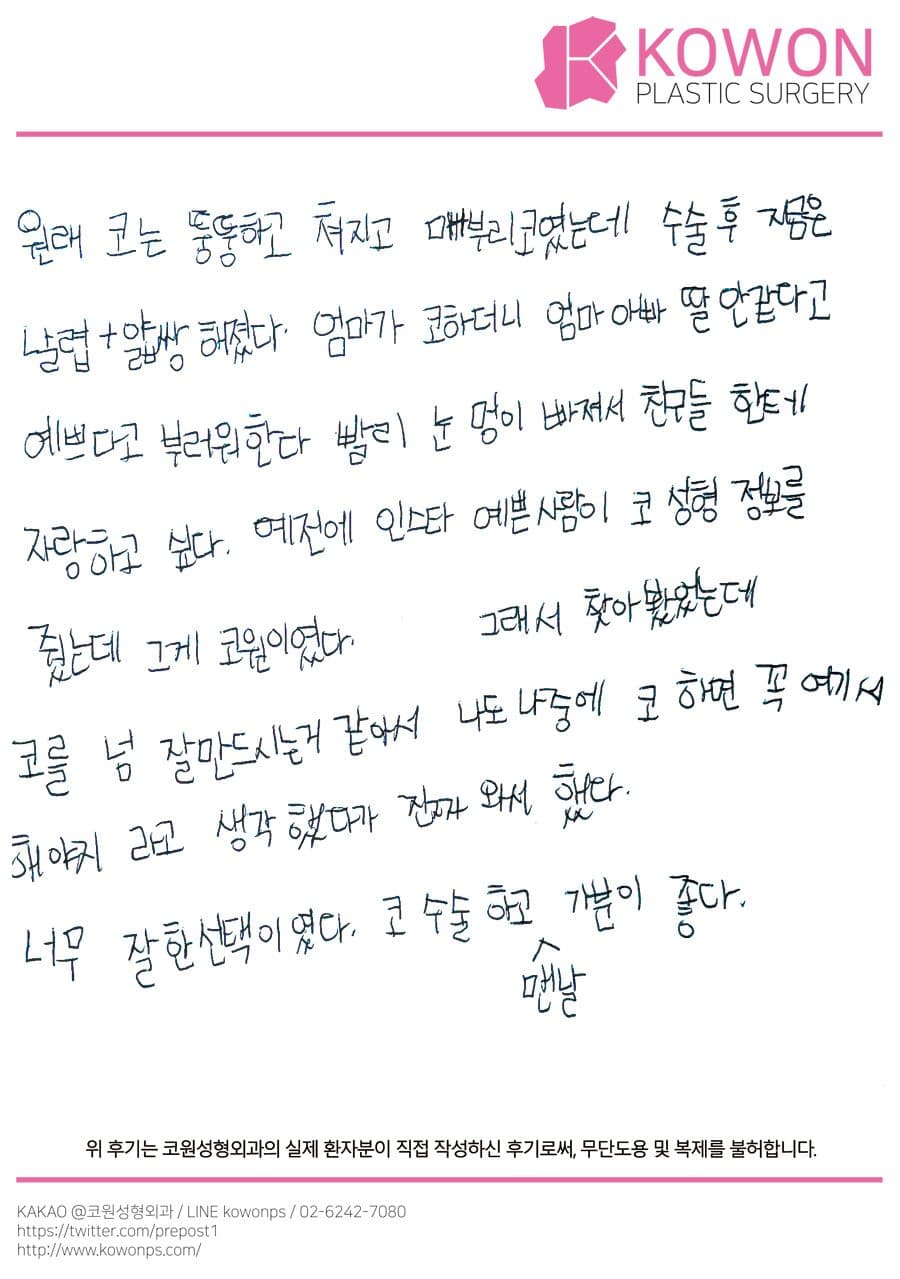 KOWON
PLASTIC SURGERY
원래 코는 뚱뚱하고 쳐지고 매부리코였는데 수술후 지금은
날렵+얇쌍 해졌다. 엄마가 코하더니 엄마아빠 딸 안같다고
예쁘다고 부러워한다 빨리 눈 멍이 빠져서 친구들 한테
자랑하고 싶다. 예전에 인스타 예쁜사람이 코 성형 정보를
줬는데 그게 코원이였다. 그래서 찾아봤었는데
코를 넘 잘만드시는거 같아서 나도 나중에 코 하면 꼭 여기서
해야지 라고 생각했다가 진짜 와서 했다.
너무 잘한선택이였다. 코 수술하고 기분이 좋다.
맨날
위 후기는 코원성형외과의 실제 환자분이 직접 작성하신 후기로써, 무단도용 및 복제를 불허합니다.
KAKAO @코원성형외과 / LINE kowonps / 02-6242-7080
https://twitter.com/prepost1
http://www.kowonps.com/